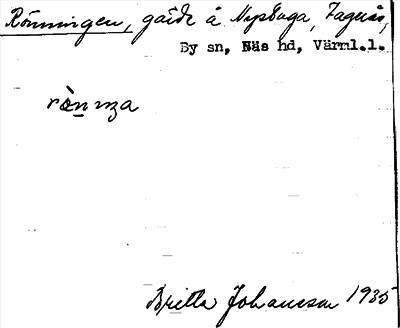 Rönningen, gärde å Nysbuga,
By sn, Näs hd, Värml.l.
rò̀n nza
Britta Johansson 1935